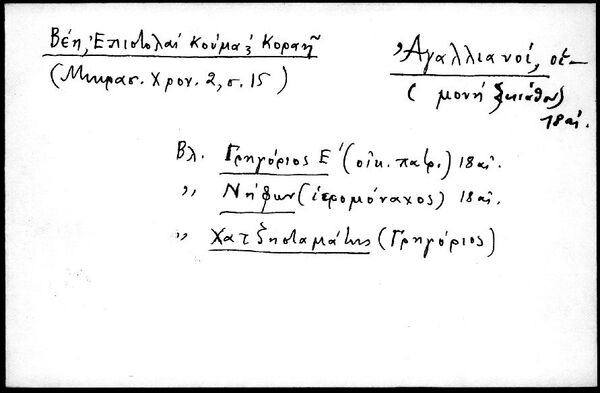 Βέη, Ἐπιστολαὶ Κούμα & Κοραῆ
(Μικρασ. Χρον. 2, σ. 15)
Ἀγαλλιανοί, οἱ—
(μονή Σκιάθου)
18 αἰ.
Βλ. Γρηγόριος Ε΄ (οἰκ. πατρ.) 18 αἰ.
〃 Νήφων (ἱερομόναχος) 18 αἰ.
〃 Χατζησταμάτης (Γρηγόριος)